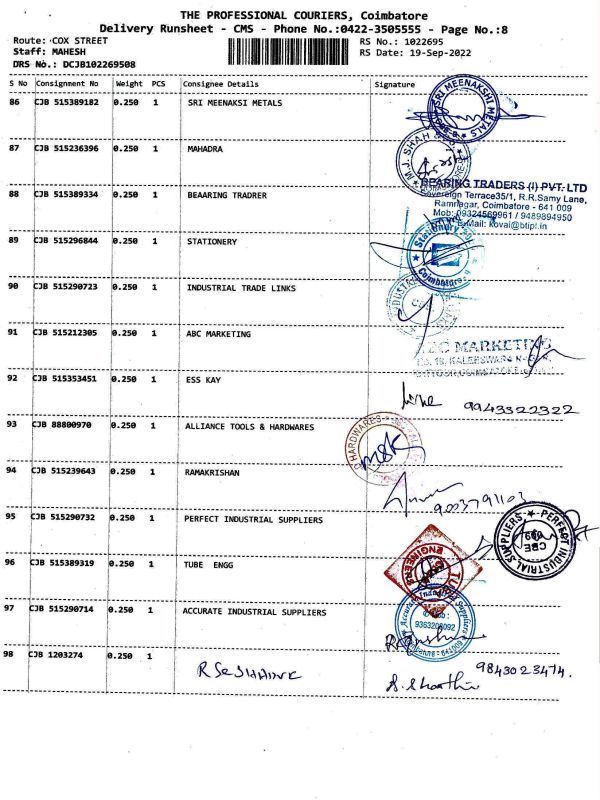 THE PROFESSIONAL COURIERS, Coimbatore
Delivery Runsheet - CMS - Phone No.:0422-3505555 - Page No.:8
Route: COX STREET
RS No.: 1022695
Staff: MAHESH
RS Date: 19-Sep-2022
DRS No.: DCJB102269508
S No Consignment No Weight PCS Consignee Details Signature
86 CJB 515389182 0.250 1 SRI MEENAKSI METALS
SRI MEENAKSHI METALS
87 CJB 515236396 0.250 1 MAHADRA
M.J. SHAH
88 CJB 515389334 0.250 1 BEAARING TRADRER
BEARING TRADERS (I) PVT. LTD
Sovereign Terrace35/1, R.R.Samy Lane,
Ramnagar, Coimbatore - 641 009
Mob: 09324569961 / 9489894950
E-Mail: kovai@btipl.in
89 CJB 515296844 0.250 1 STATIONERY
Stationery
Coimbatore
90 CJB 515290723 0.250 1 INDUSTRIAL TRADE LINKS
91 CJB 515212305 0.250 1 ABC MARKETING
ABC MARKETING
92 CJB 515353451 0.250 1 ESS KAY
9943322322
93 CJB 88800970 0.250 1 ALLIANCE TOOLS & HARDWARES
HARDWARES
94 CJB 515239643 0.250 1 RAMAKRISHAN
9003791103
95 CJB 515290732 0.250 1 PERFECT INDUSTRIAL SUPPLIERS
PERFECT INDUSTRIAL SUPPLIERS
CBE
96 CJB 515389319 0.250 1 TUBE ENGG
ENGINEERS
97 CJB 515290714 0.250 1 ACCURATE INDUSTRIAL SUPPLIERS
Accurate Industrial Suppliers
98 CJB 1203274 0.250 1
9843023474.